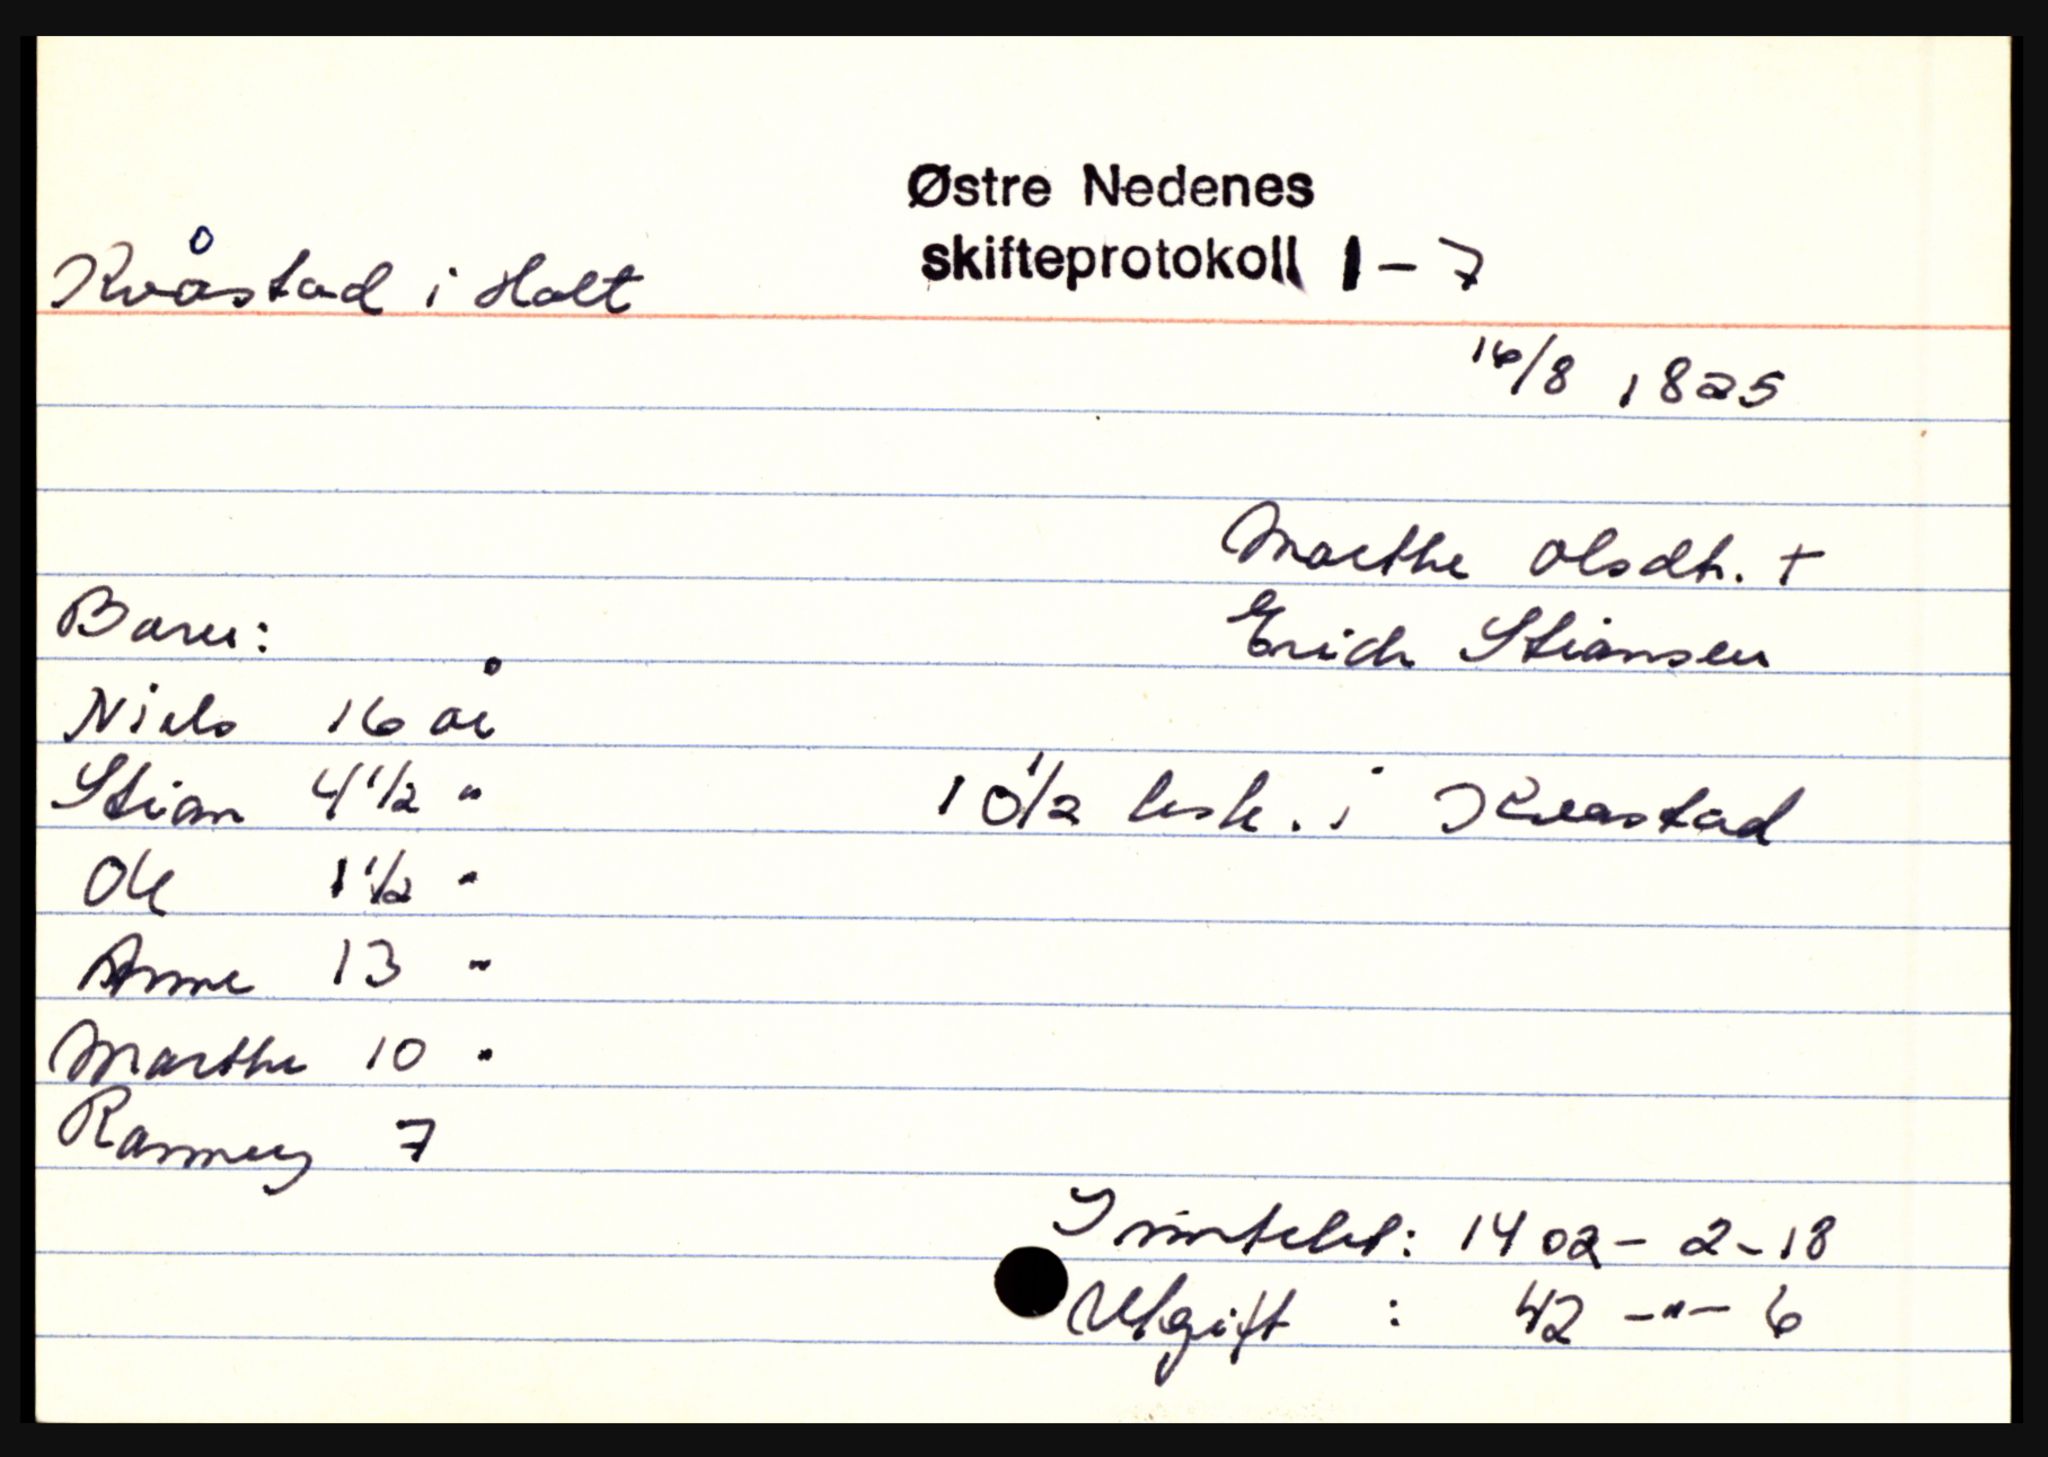 Østre Nedenes
skifteprotokoll 1 - 7
Kvåstad i Holt
16/8 1825
Marthe Olsdtr. +
Erich Stiansen
Barn:
Niels 16 år
Stian 4 1/2 "
Ole 1 1/2 "
Anne 13 "
Marthe 10 "
Rasmus 7
1 0 1/2 i Kvastad
Inntekt: 1402 - 2 - 18
Utgift : 42 - " - 6